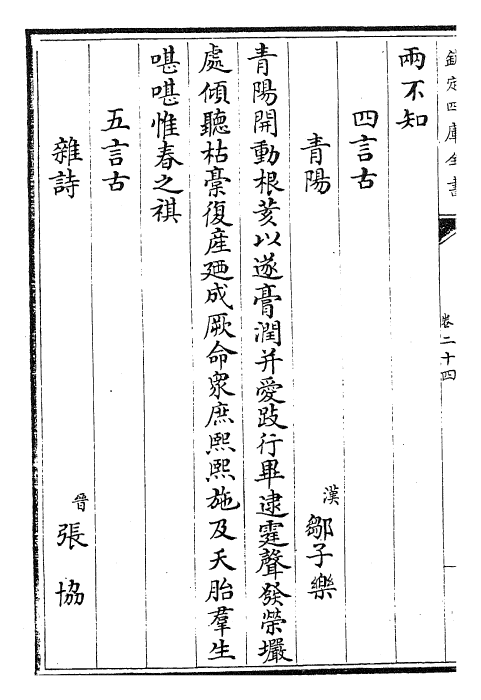 欽定四庫全書
卷二十四
兩不知
四言古
青陽
漢 鄒子樂
青陽開動根荄以遂膏潤并愛跂行畢逮霆聲發榮壧
處傾聽枯槀復産廼成厥命衆庶熙熙施及夭胎羣生
啿啿惟春之祺
五言古
雜詩
晉 張協